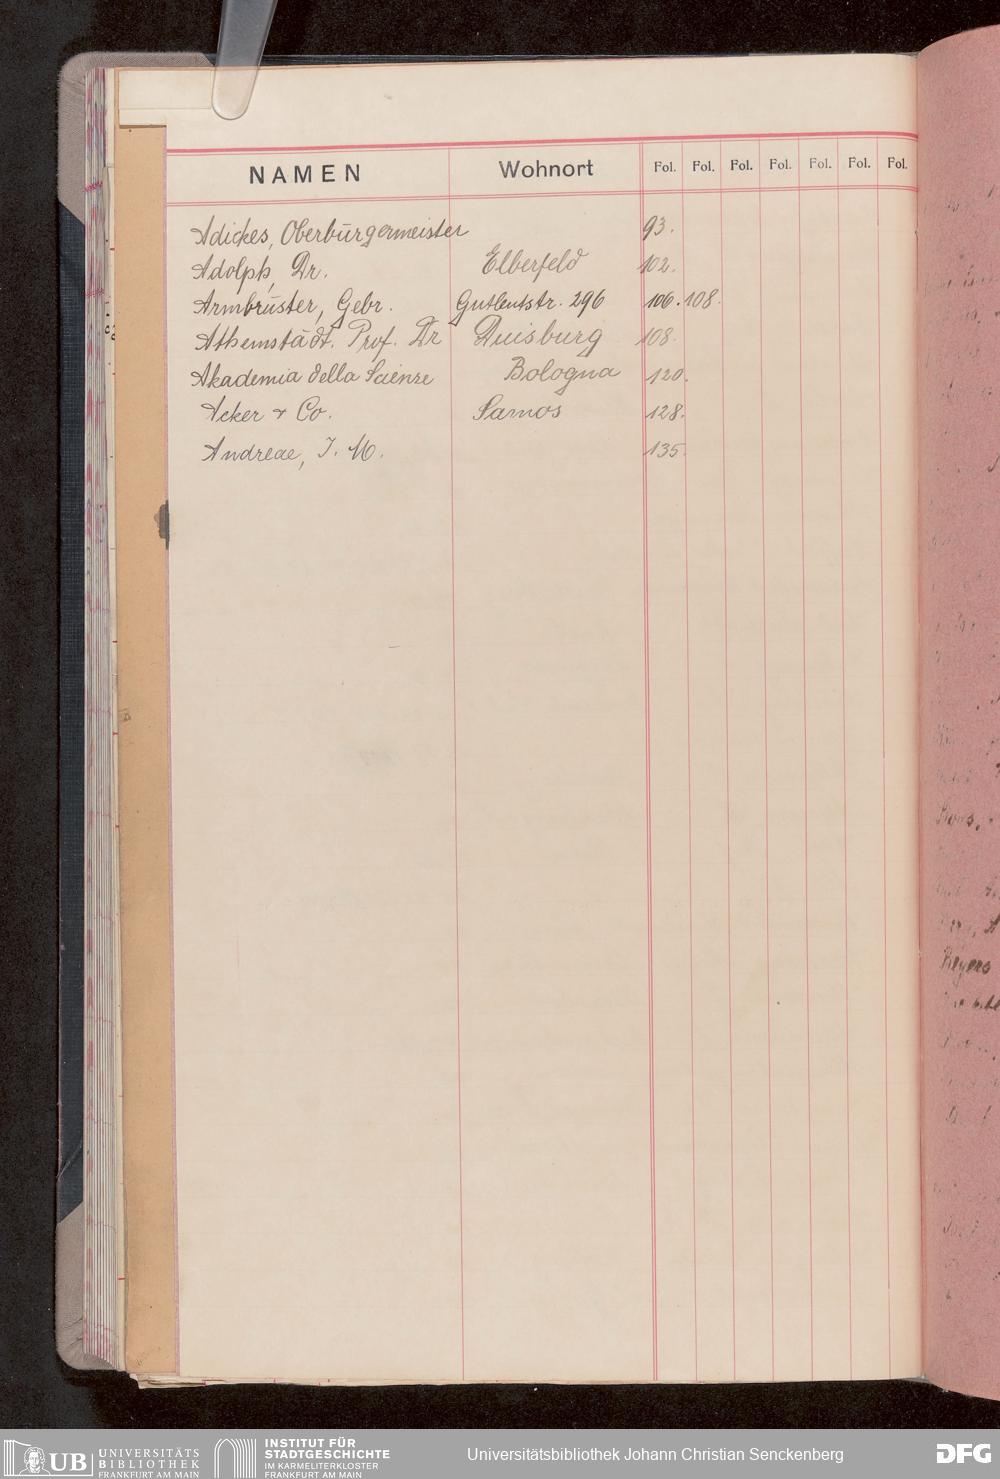 NAMEN Wohnort Fol. Fol. Fol. Fol. Fol. Fol. Fol.
Adickes, Oberbürgermeister 93.
Adolph, Dr. Elberfeld 102.
Armbrüster, Gebr. Gutleutstr. 296 106. 108.
Athenstädt. Prof. Dr Duisburg 108.
Akademia della Scienze Bologna 120.
Acker & Co. Samos 128.
Andreae, J. M. 135.
UB UNIVERSITÄTS
BIBLIOTHEK
FRANKFURT AM MAIN
INSTITUT FÜR
STADTGESCHICHTE
IM KARMELITERKLOSTER
FRANKFURT AM MAIN
Universitätsbibliothek Johann Christian Senckenberg
DFG